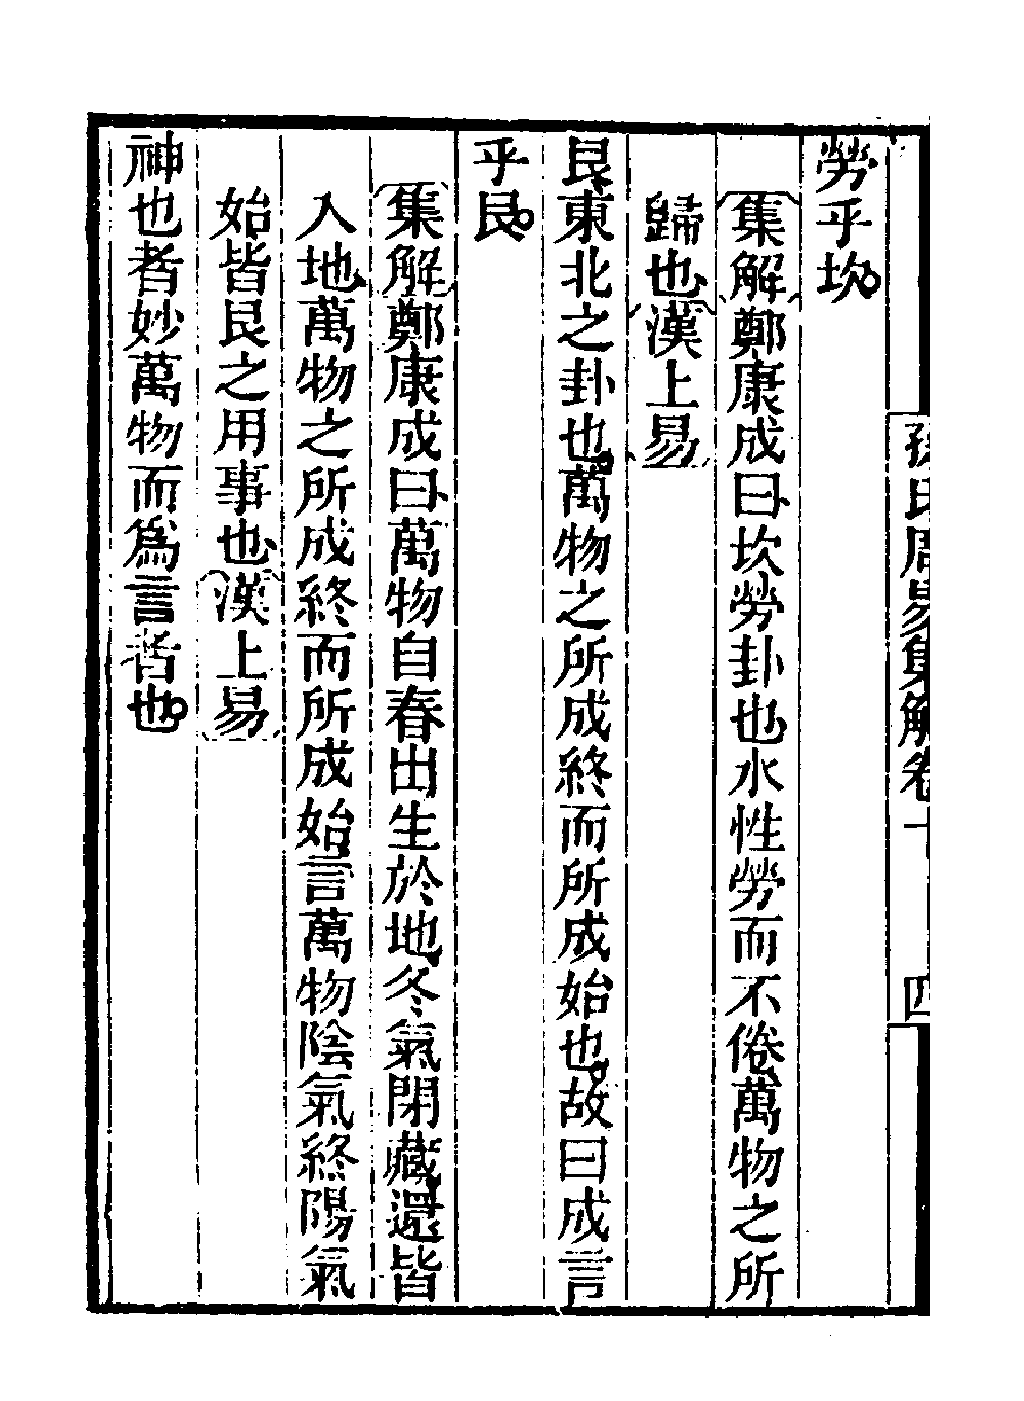 孫氏周易集解卷十 四
勞乎坎。
集解鄭康成曰、坎勞卦也、水性勞而不倦、萬物之所
歸也、漢上易
艮東北之卦也。萬物之所成終而所成始也。故曰成言
乎艮。
集解鄭康成曰、萬物自春出生於地、冬氣閉藏、還皆
入地、萬物之所成終而所成始、言萬物陰氣終陽氣
始皆艮之用事也、漢上易
神也者妙萬物而爲言者也。